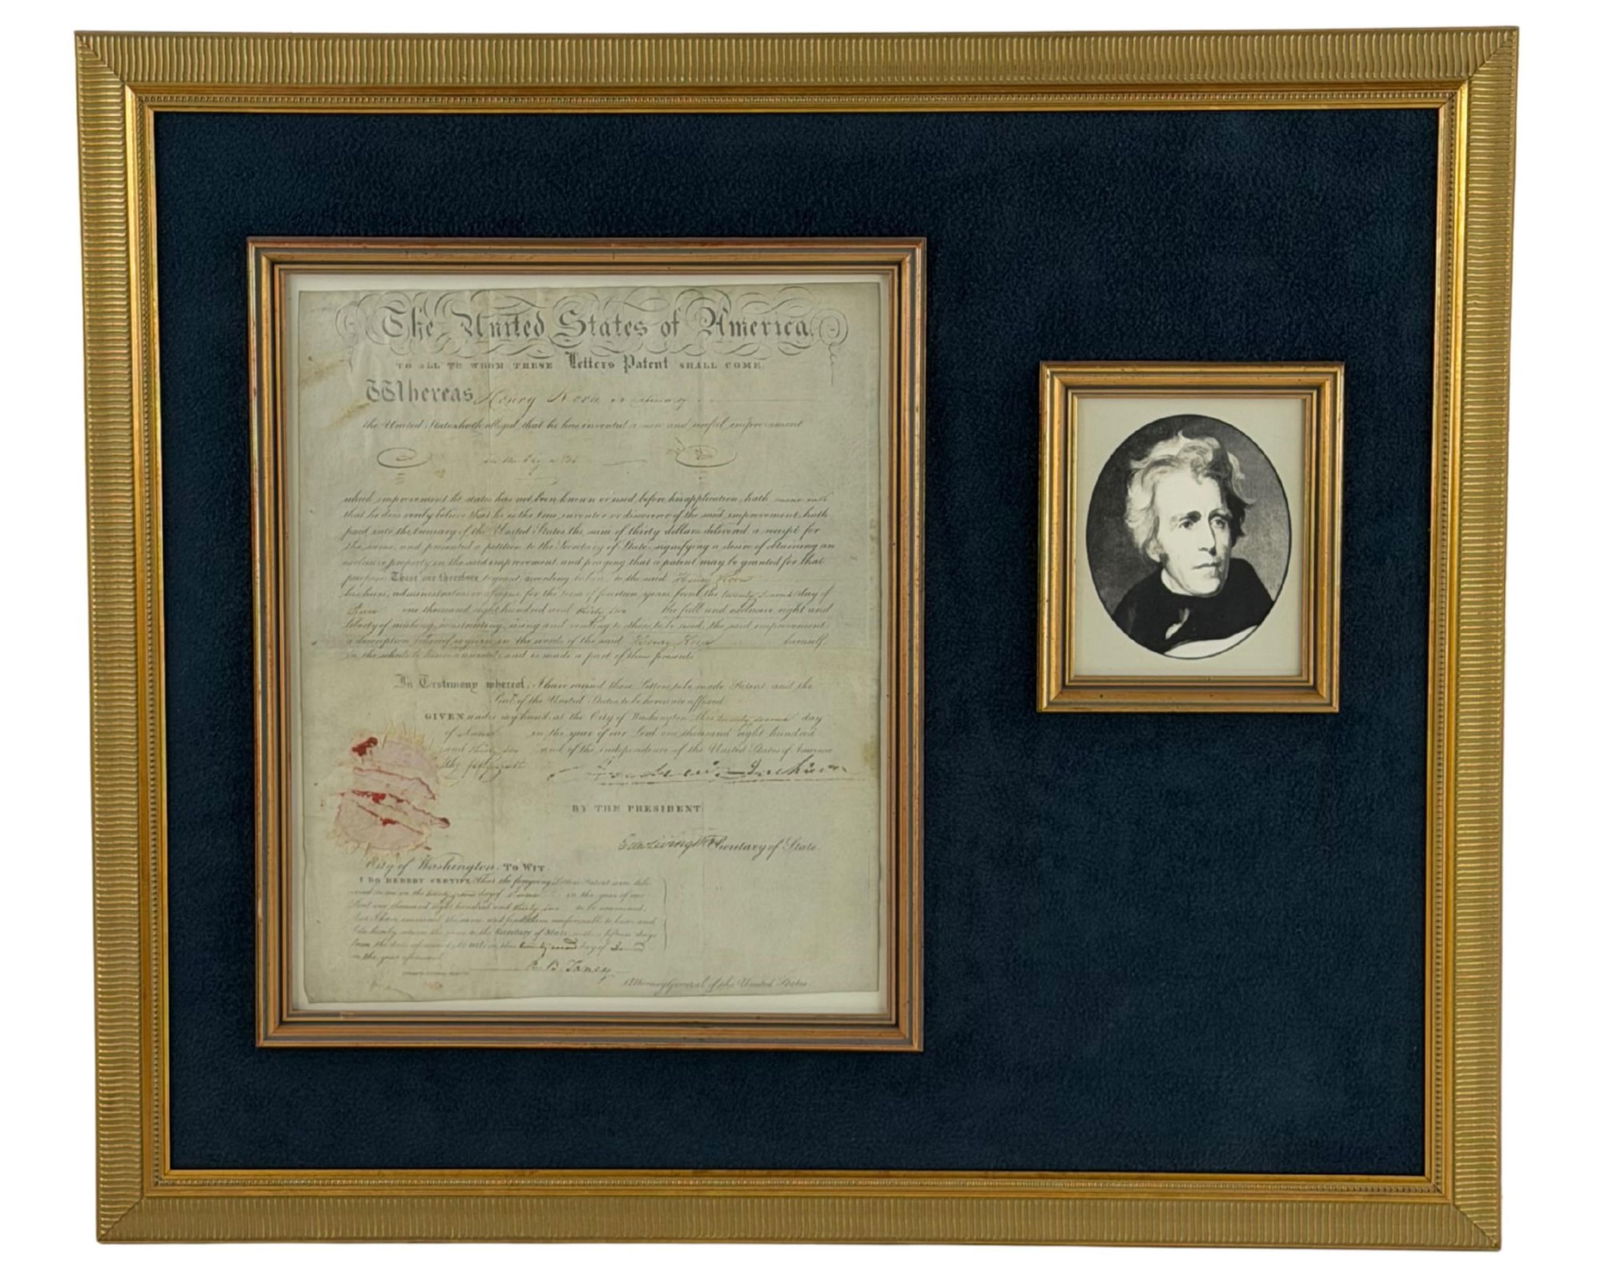 The United States of America.
TO ALL TO WHOM THESE Letters Patent SHALL COME:
Whereas Henry
the United States hath alleged that he has invented a new and useful improvement
in the
which improvement he states has not been known or used before his application, hath made oath
that he does verily believe that he is the true inventor or discoverer of the said improvement, hath
paid into the treasury of the United States the sum of thirty dollars delivered a receipt for
the same, and presented a petition to the Secretary of State, signifying a desire of obtaining an
exclusive property in the said improvement, and praying that a patent may be granted for that
purpose. These are therefore to grant, according to law, to the said Henry
his heirs, administrators or assigns for the term of fourteen years from the twenty second day of
one thousand eight hundred and thirty two the full and exclusive right and
liberty of making, constructing, using and vending to others to be used, the said improvement
a description whereof is given in the words of the said Henry himself,
in the schedule hereunto annexed and is made a part of these presents.
In Testimony whereof, I have caused these Letters to be made Patent and the
Seal of the United States to be hereunto affixed.
GIVEN under my hand at the City of Washington this twenty second day
of in the year of our Lord one thousand eight hundred
and thirty two and of the independence of the United States of America
the
Andrew Jackson
BY THE PRESIDENT
Edw. Livingston Secretary of State
City of Washington, TO WIT:
I DO HEREBY CERTIFY, That the foregoing Letters Patent were
on the day of in the year of our
Lord one thousand eight hundred and thirty two to be examined,
that I have examined the same and find them conformable to law, and
I do hereby return the same to the Secretary of State within fifteen days
from the date aforesaid, to wit: on this twenty second day of
in the year aforesaid.
R. B. Taney
Attorney General of the United States.